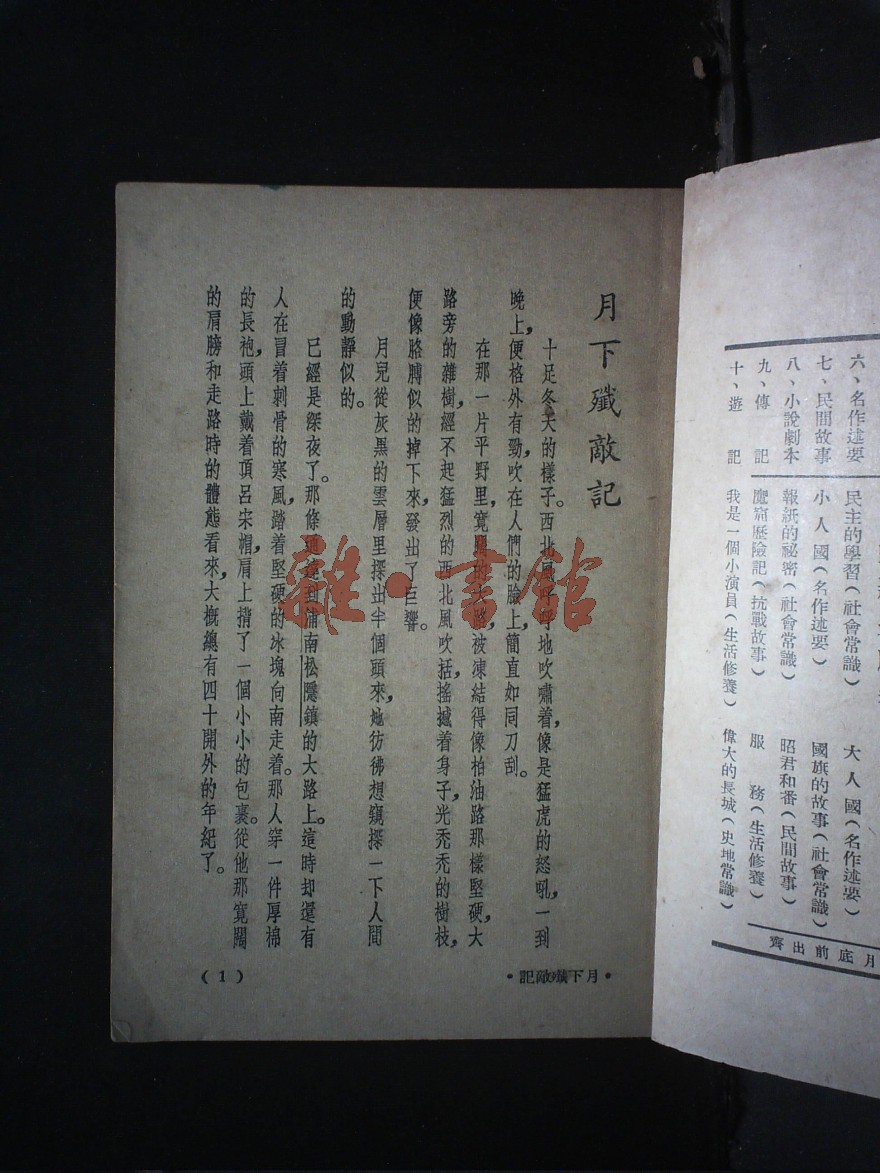 六、名作述要
七、民間故事
八、小說劇本
九、傳記
十、遊記
民主的學習(社會常識) 大人國(名作述要)
小人國(名作述要) 國旗的故事(社會常識)
報紙的祕密(社會常識) 昭君和番(民間故事)
魔窟歷險記(抗戰故事) 服務(生活修養)
我是一個小演員(生活修養) 偉大的長城(史地常識)
月底前出齊
月下殲敵記
十足冬天的樣子。西北風呼呼地吹嘯着,像是猛虎的怒吼,一到
晚上,便格外有勁,吹在人們的臉上,簡直如同刀刮。
在那一片平野里,寬闊的大路,被凍結得像柏油路那樣堅硬,大
路旁的雜樹,經不起猛烈的西北風吹括,搖撼着身子,光禿禿的樹枝,
便像胳膊似的掉下來,發出了巨響。
月兒從灰黑的雲層里探出半個頭來,她彷彿想窺探一下人間
的動靜似的。
已經是深夜了。那條通達到浦南松隱鎮的大路上。這時却還有
人在冒着刺骨的寒風,踏着堅硬的冰塊向南走着。那人穿一件厚棉
的長袍,頭上戴着頂呂宋帽,肩上揹了一個小小的包裹。從他那寬闊
的肩膀和走路時的體態看來,大概總有四十開外的年紀了。
·月下殲敵記·
(1)
雜·書館